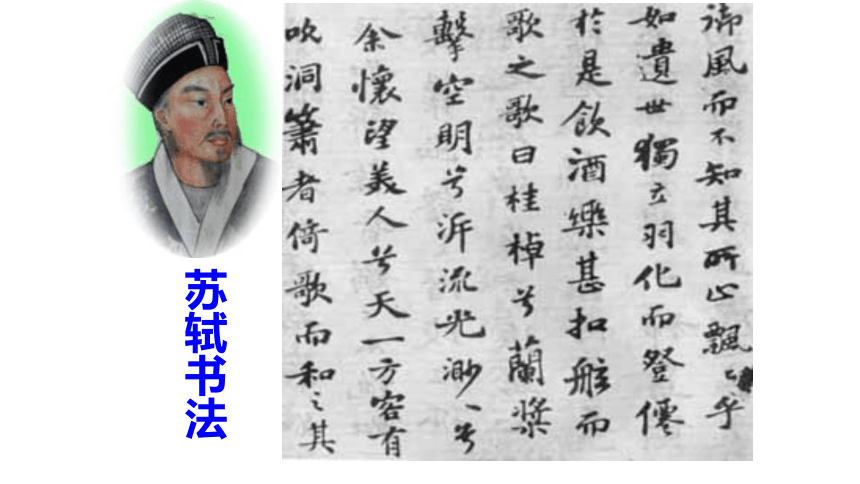 苏轼书法
御風而不知其所止飄〻乎
如遺世獨立羽化而登僊
於是飲酒樂甚扣舷而
歌之歌曰桂棹兮蘭槳
擊空明兮泝流光渺〻兮
余懷望美人兮天一方客有
吹洞簫者倚歌而和之其